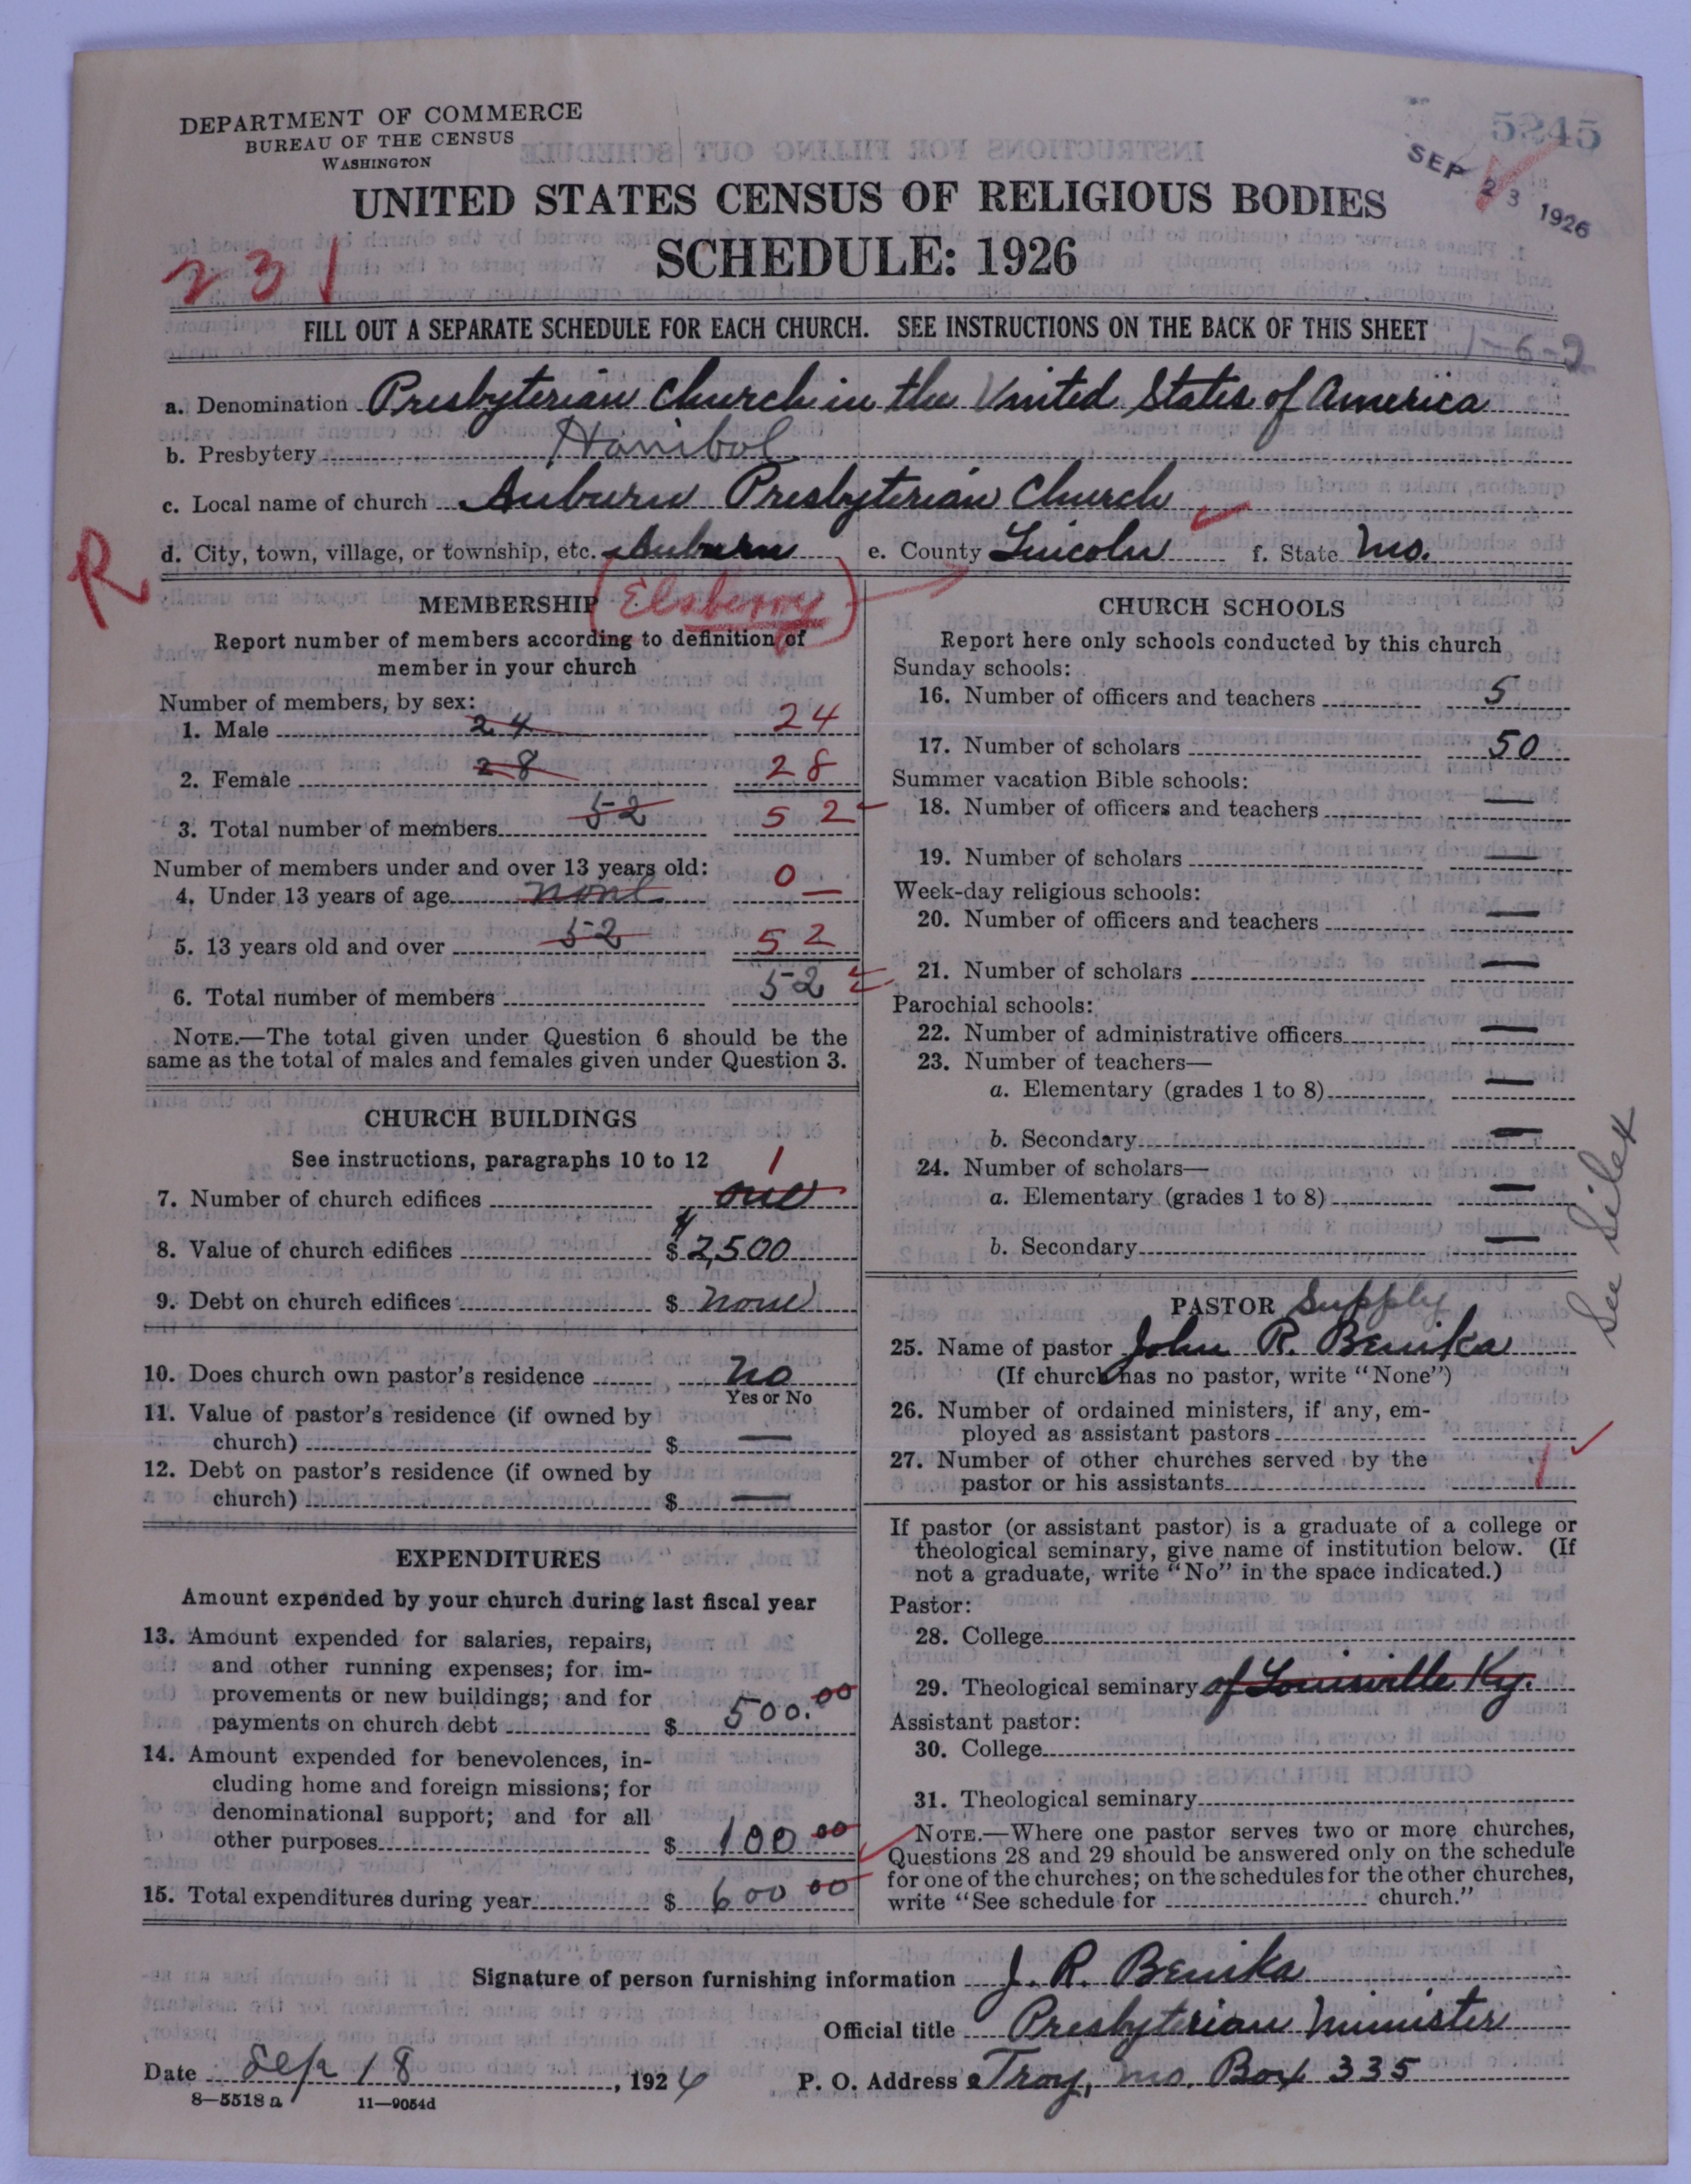 DEPARTMENT OF COMMERCE
BUREAU OF THE CENSUS
WASHINGTON
5245
SEP 23 1926
UNITED STATES CENSUS OF RELIGIOUS BODIES
SCHEDULE: 1926
231
FILL OUT A SEPARATE SCHEDULE FOR EACH CHURCH. SEE INSTRUCTIONS ON THE BACK OF THIS SHEET
1-6-2
a. Denomination Presbyterian Church in the United States of America
b. Presbytery Hanibal
c. Local name of church Auburn Presbyterian Church
d. City, town, village, or township, etc. Auburn e. County Lincoln f. State Mo.
R
(Elsberry)
MEMBERSHIP
Report number of members according to definition of
member in your church
Number of members, by sex:
1. Male 24 24
2. Female 28 28
3. Total number of members 52 52
Number of members under and over 13 years old:
4. Under 13 years of age none 0
5. 13 years old and over 52 52
6. Total number of members 52
NOTE.—The total given under Question 6 should be the
same as the total of males and females given under Question 3.
CHURCH BUILDINGS
See instructions, paragraphs 10 to 12
7. Number of church edifices one 1
8. Value of church edifices $ 2,500
9. Debt on church edifices $ none
10. Does church own pastor's residence no
Yes or No
11. Value of pastor's residence (if owned by
church) $ —
12. Debt on pastor's residence (if owned by
church) $ —
EXPENDITURES
Amount expended by your church during last fiscal year
13. Amount expended for salaries, repairs,
and other running expenses; for im-
provements or new buildings; and for
payments on church debt $ 500.00
14. Amount expended for benevolences, in-
cluding home and foreign missions; for
denominational support; and for all
other purposes $ 100 00
15. Total expenditures during year $ 600 00
CHURCH SCHOOLS
Report here only schools conducted by this church
Sunday schools:
16. Number of officers and teachers 5
17. Number of scholars 50
Summer vacation Bible schools:
18. Number of officers and teachers —
19. Number of scholars —
Week-day religious schools:
20. Number of officers and teachers —
21. Number of scholars —
Parochial schools:
22. Number of administrative officers —
23. Number of teachers—
a. Elementary (grades 1 to 8) —
b. Secondary —
24. Number of scholars—
a. Elementary (grades 1 to 8) —
b. Secondary —
See Silex
PASTOR Supply
25. Name of pastor John R. Benika
(If church has no pastor, write "None")
26. Number of ordained ministers, if any, em-
ployed as assistant pastors
27. Number of other churches served by the
pastor or his assistants 1
If pastor (or assistant pastor) is a graduate of a college or
theological seminary, give name of institution below. (If
not a graduate, write "No" in the space indicated.)
Pastor:
28. College
29. Theological seminary of Louisville Ky.
Assistant pastor:
30. College
31. Theological seminary
NOTE.—Where one pastor serves two or more churches,
Questions 28 and 29 should be answered only on the schedule
for one of the churches; on the schedules for the other churches,
write "See schedule for church."
Signature of person furnishing information J. R. Benika
Official title Presbyterian Minister
Date Sep 18, 1926 P. O. Address Troy, Mo. Box 335
8—5518 a 11—9054d